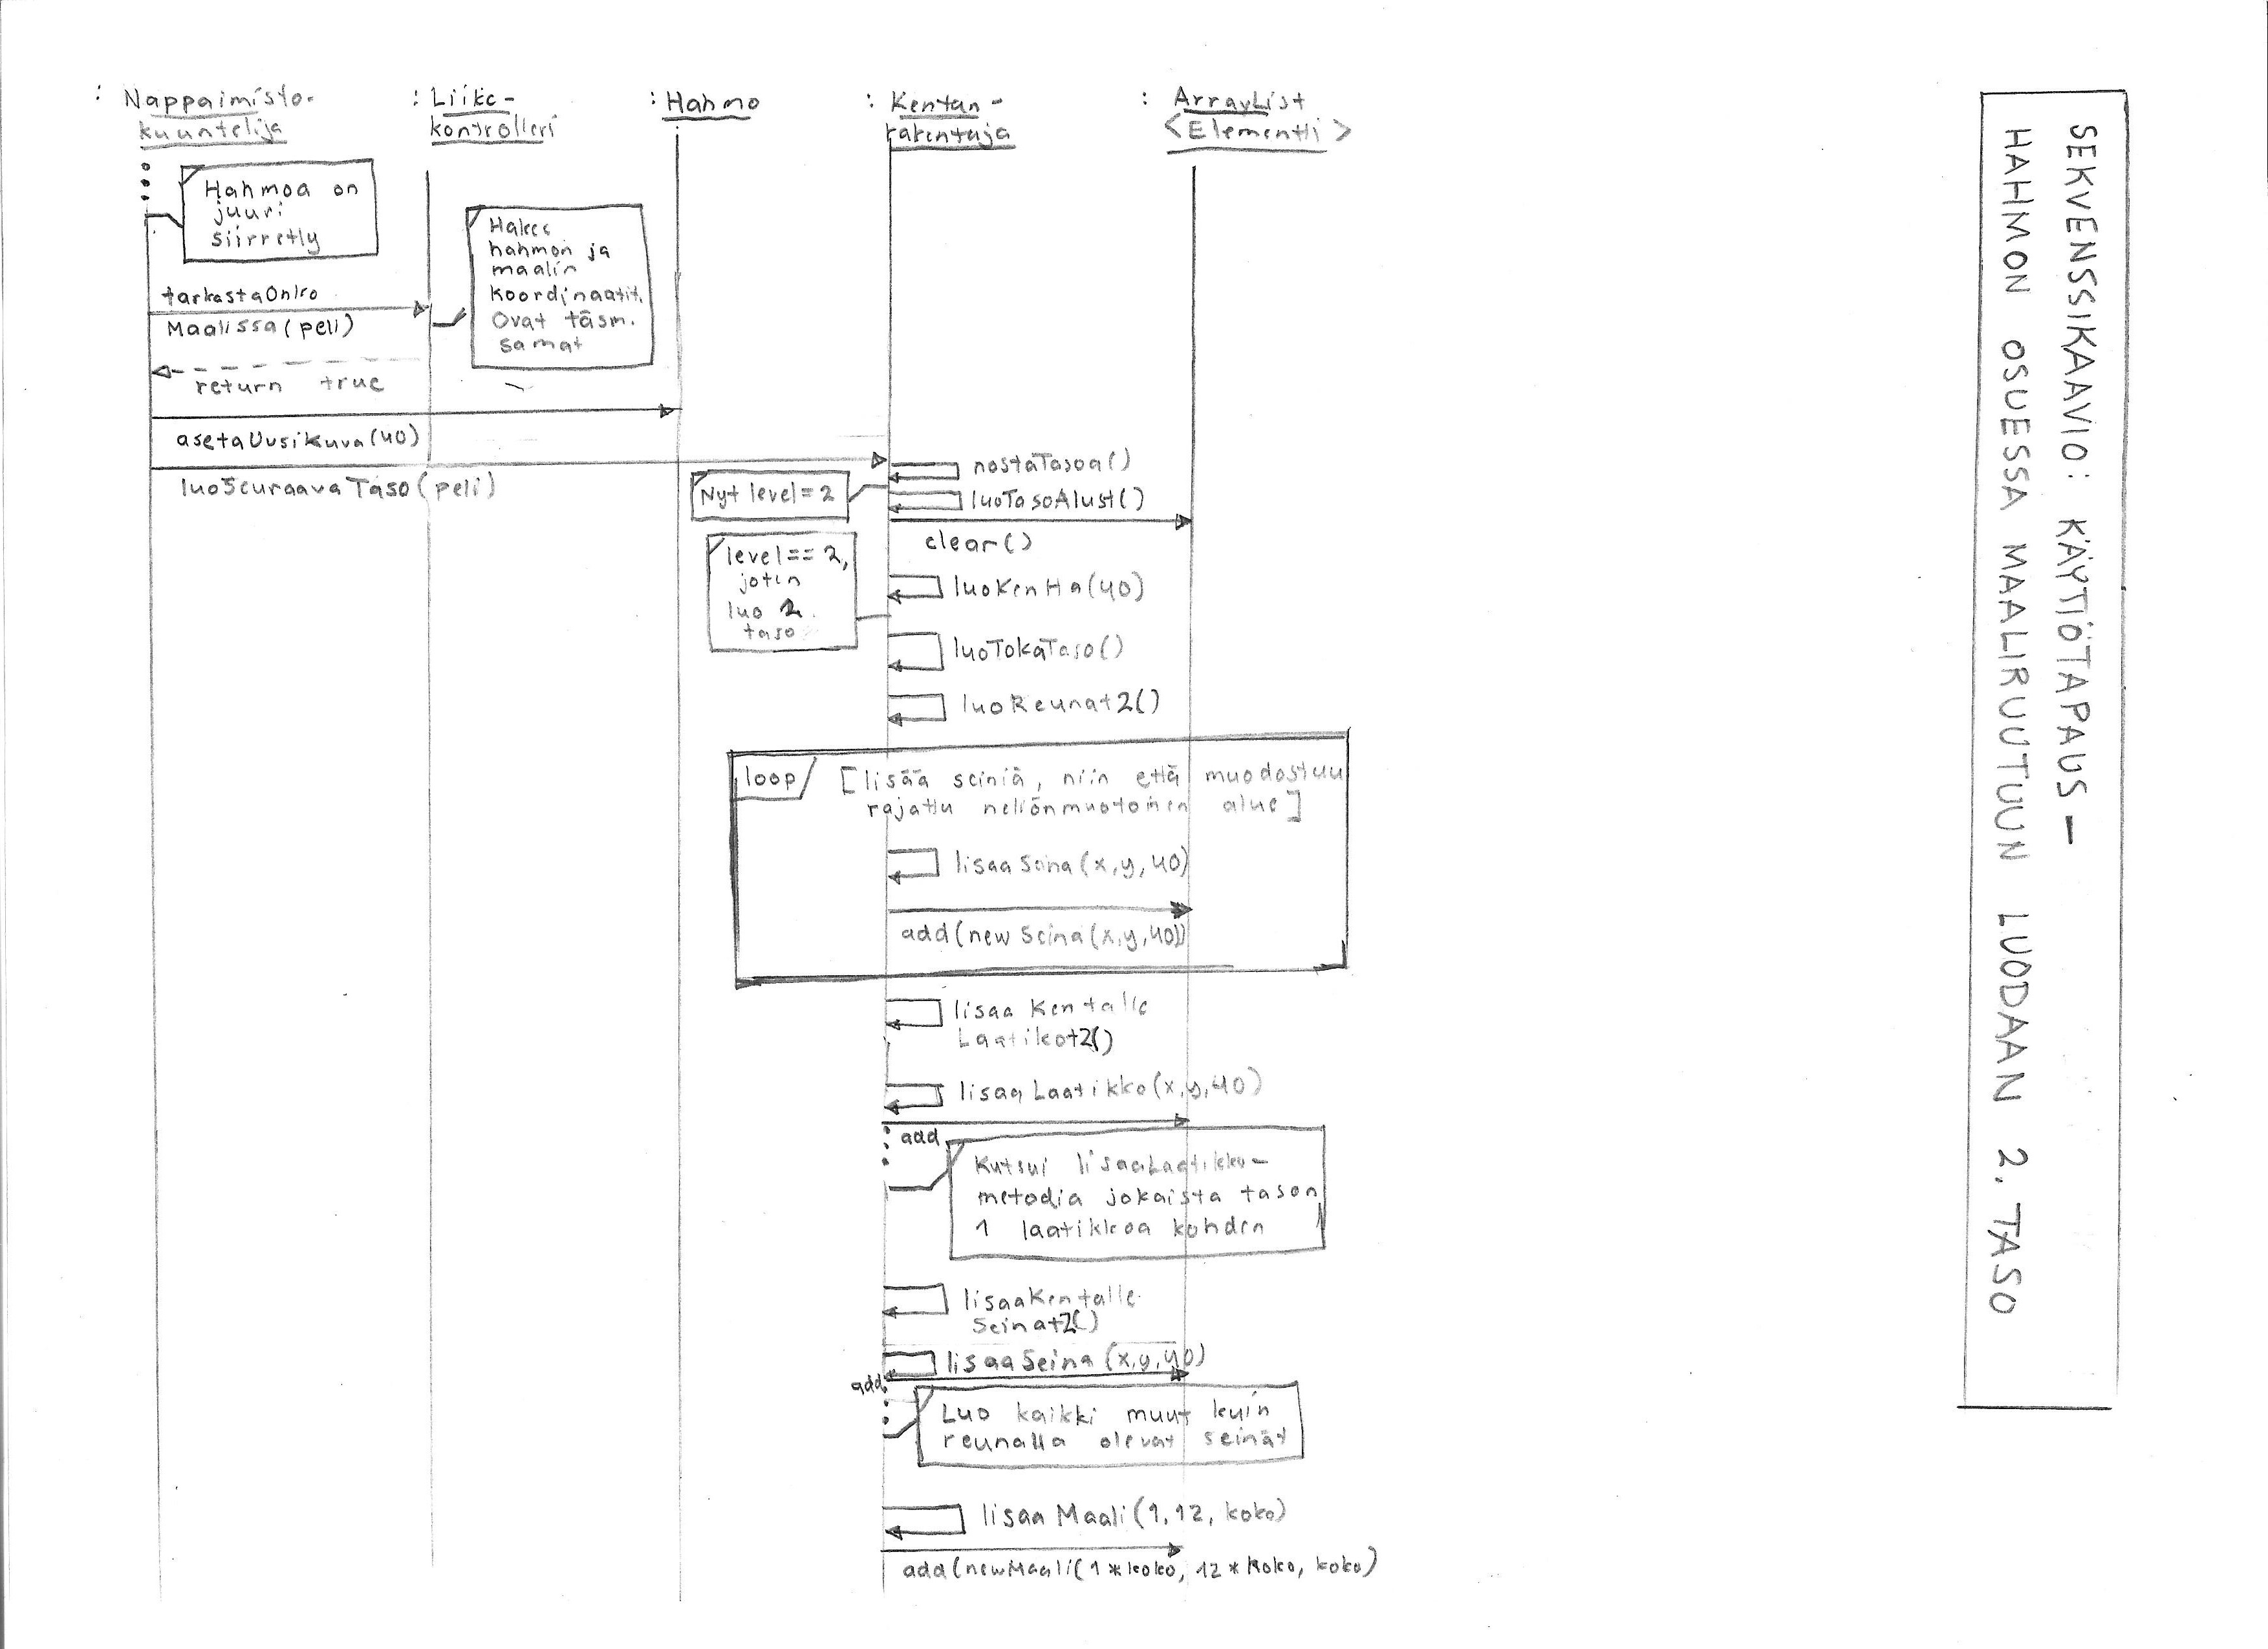 : Nappaimisto-
kuuntelija
: Liike-
kontrolleri
: Hahmo
: Kentan-
rakentaja
: ArrayList
<Elementti>
Hahmoa on
juuri
siirretty
Hakee
hahmon ja
maalin
koordinaatit.
Ovat täsm.
samat
tarkastaOnko
Maalissa(peli)
return true
asetaUusiKuva(40)
luoSeuraavaTaso(peli)
nostaTasoa()
Nyt level=2
luoTasoAlust()
clear()
level==2,
joten
luo 2.
taso
luoKenHa(40)
luoTokaTaso()
luoReunat2()
loop
[lisää seiniä, niin että muodostuu
rajattu neliönmuotoinen alue]
lisaaSeina(x,y,40)
add(new Seina(x,y,40))
lisaa Kentalle
Laatikot2()
lisaaLaatikko(x,y,40)
add
Kutsui lisaaLaatikko-
metodia jokaista tason
1 laatikkoa kohden
lisaaKentalle
Seinat2()
lisaaSeina(x,y,40)
add
Luo kaikki muut kuin
reunalla olevat seinät
lisaa Maali(1,12, koko)
add(newMaali(1*koko, 12*koko, koko)
SEKVENSSIKAAVIO: KÄYTTÖTAPAUS –
HAHMON OSUESSA MAALIRUUTUUN LUODAAN 2. TASO